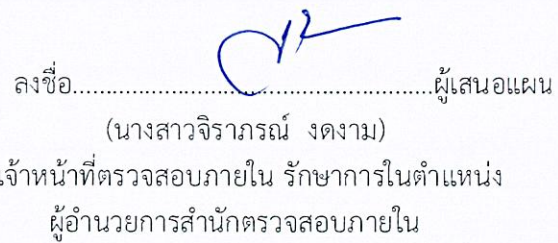 ลงชื่อ........................................................ผู้เสนอแผน
(นางสาวจิราภรณ์ งดงาม)
เจ้าหน้าที่ตรวจสอบภายใน รักษาการในตำแหน่ง
ผู้อำนวยการสำนักตรวจสอบภายใน